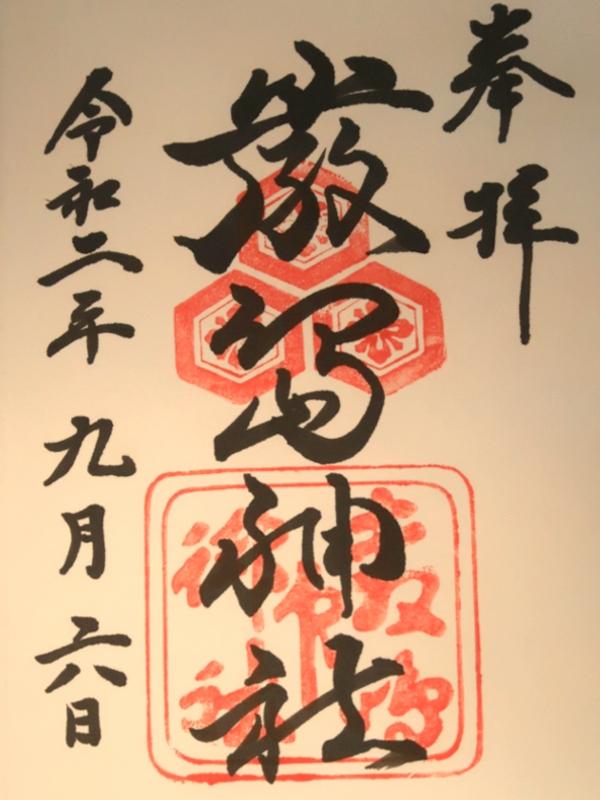 奉拝
厳島神社
令和二年九月六日